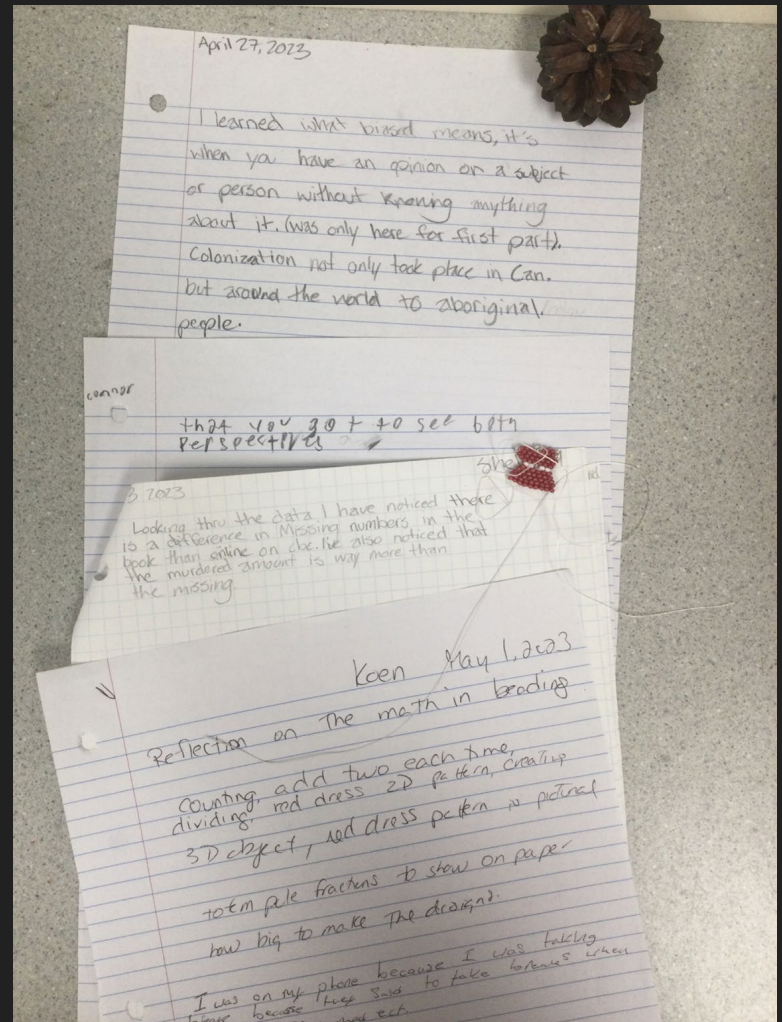 April 27, 2023
I learned what biased means, it's
when you have an opinion on a subject
or person without knowing anything
about it. (was only here for first part).
Colonization not only took place in Can.
but around the world to aboriginal.
people.
connor
that you got to see both
Perspectives
She
3 2023
Looking thru the data I have noticed there
is a difference in Missing numbers in the
book than online on cbc. I've also noticed that
the murdered amount is way more than
the missing
Koen May 1, 2023
Reflection on The math in beading
counting, add two each time,
dividing, red dress 2D pattern, creating
3D object, red dress pattern is
totem pole fractions to show on paper
how big to make The
I was on my phone because I was taking
because they said to take when
ect.